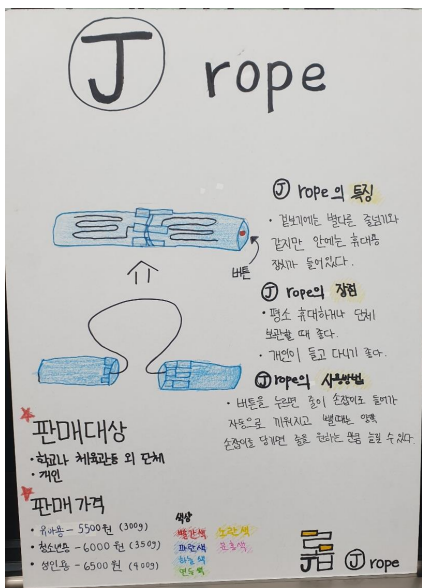 J rope
J rope의 특징
· 겉보기에는 별다른 줄넘기와
같지만 안에는 휴대용
장치가 들어있다.
버튼
J rope의 장점
· 평소 휴대하거나 단체
보관할 때 좋다.
· 개인이 들고 다니기 좋다.
J rope의 사용방법
· 버튼을 누르면 줄이 손잡이로 들어가
자동으로 끼워지고 뺄때는 양쪽
손잡이를 당기면 줄을 원하는 만큼 늘릴 수 있다.
판매대상
· 학교나 체육관등 외 단체
· 개인
판매가격
· 유아용 - 5500원 (300g)
· 청소년용 - 6000원 (350g)
· 성인용 - 6500원 (400g)
색상
빨간색 노란색
파란색 분홍색
하늘색
연두색
J rope